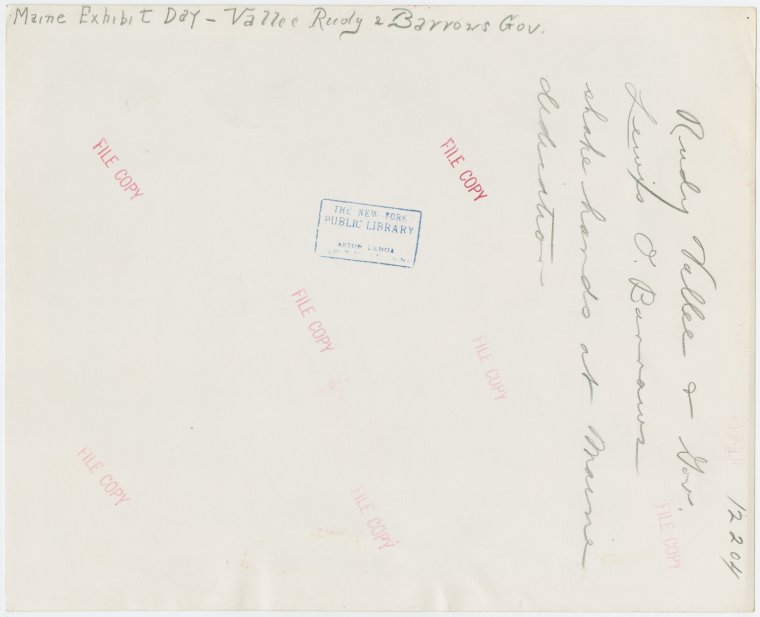 Maine Exhibit Day - Vallee Rudy & Barrows Gov.
12204
Rudy Vallee & Gov.
Lewis O. Barrows
shake hands at Maine
dedication
FILE COPY
FILE COPY
THE NEW YORK
PUBLIC LIBRARY
ASTOR LENOX
FILE COPY
FILE COPY
FILE COPY
FILE COPY
FILE COPY